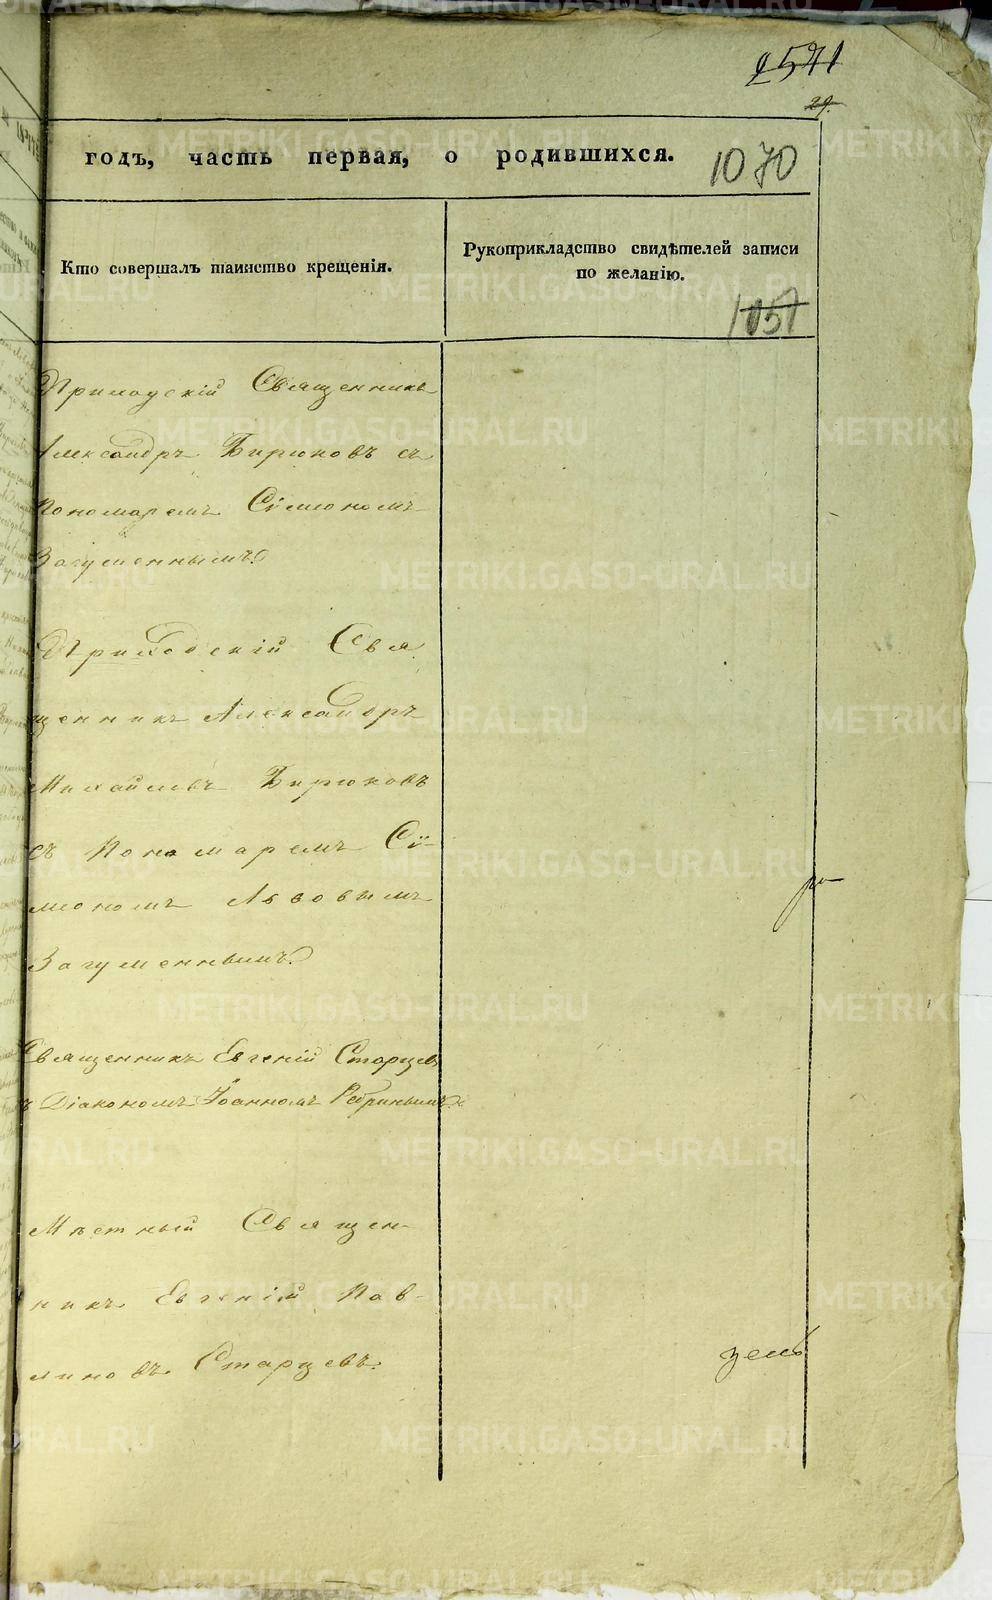 2571
29.
годъ, часть первая, о родившихся.
1070
Кто совершалъ таинство крещенія.
Рукоприкладство свидѣтелей записи
по желанію.
1057
Приходскій Священникъ
Александръ Бирюковъ съ
Пономаремъ Сѵмеономъ
Загуменнымъ.
Приходскій Свя
щенникъ Александръ
Михайловъ Бирюковъ
съ Пономаремъ Сѵ-
меономъ Львовымъ
Загуменнымъ.
Священникъ Евгеній Старцевъ
съ Діакономъ Іоанномъ
Мѣстный Священ-
никъ Евгеній Пав-
линовъ Старцевъ.
METRIKI.GASO-URAL.RU